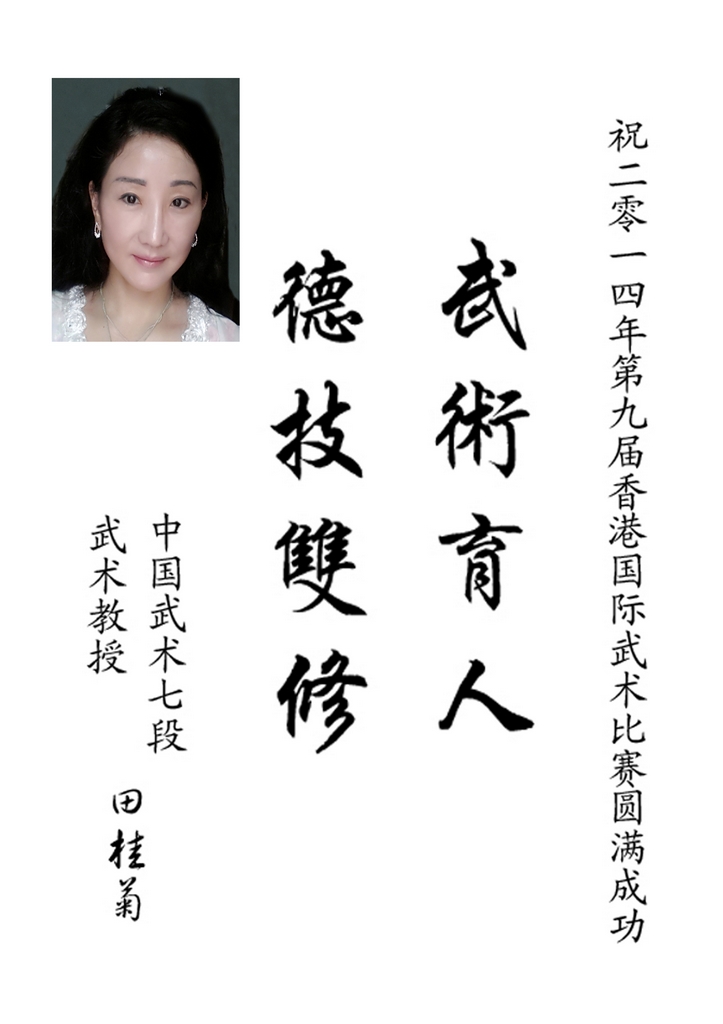 祝二零一四年第九届香港国际武术比赛圆满成功
武術育人
德技雙修
中国武术七段
武术教授
田桂菊